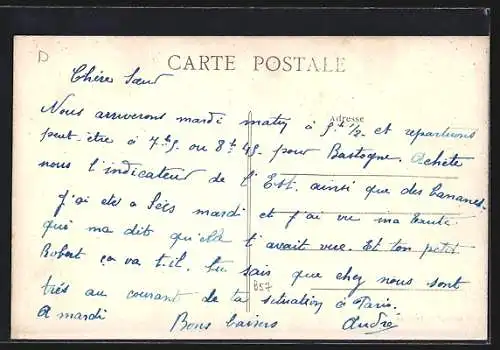 D
CARTE POSTALE
Chère Sœur
Adresse
Nous arriverons mardi matin à 9h 1/2 et repartirons
peut-être à 7h5. ou 8h 45 pour Bastogne. Achète
nous l'indicateur de l'Est. ainsi que des bananes.
J'ai été à mardi et j'ai vu ma tante
qui ma dit qu'elle t'avait vue. Et ton petit
Robert ça va t-il. Tu sais que chez nous sont
très au courant de ta situation à Paris.
B57
A mardi Bons baisers André